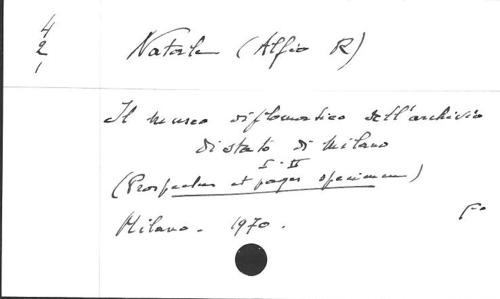 4
2
1
Natale (Alfio R)
Il museo diplomatico dell'archivio
di stato di Milano
I-II
(Prospectus et pages specimen)
Milano. 1970.
Fo